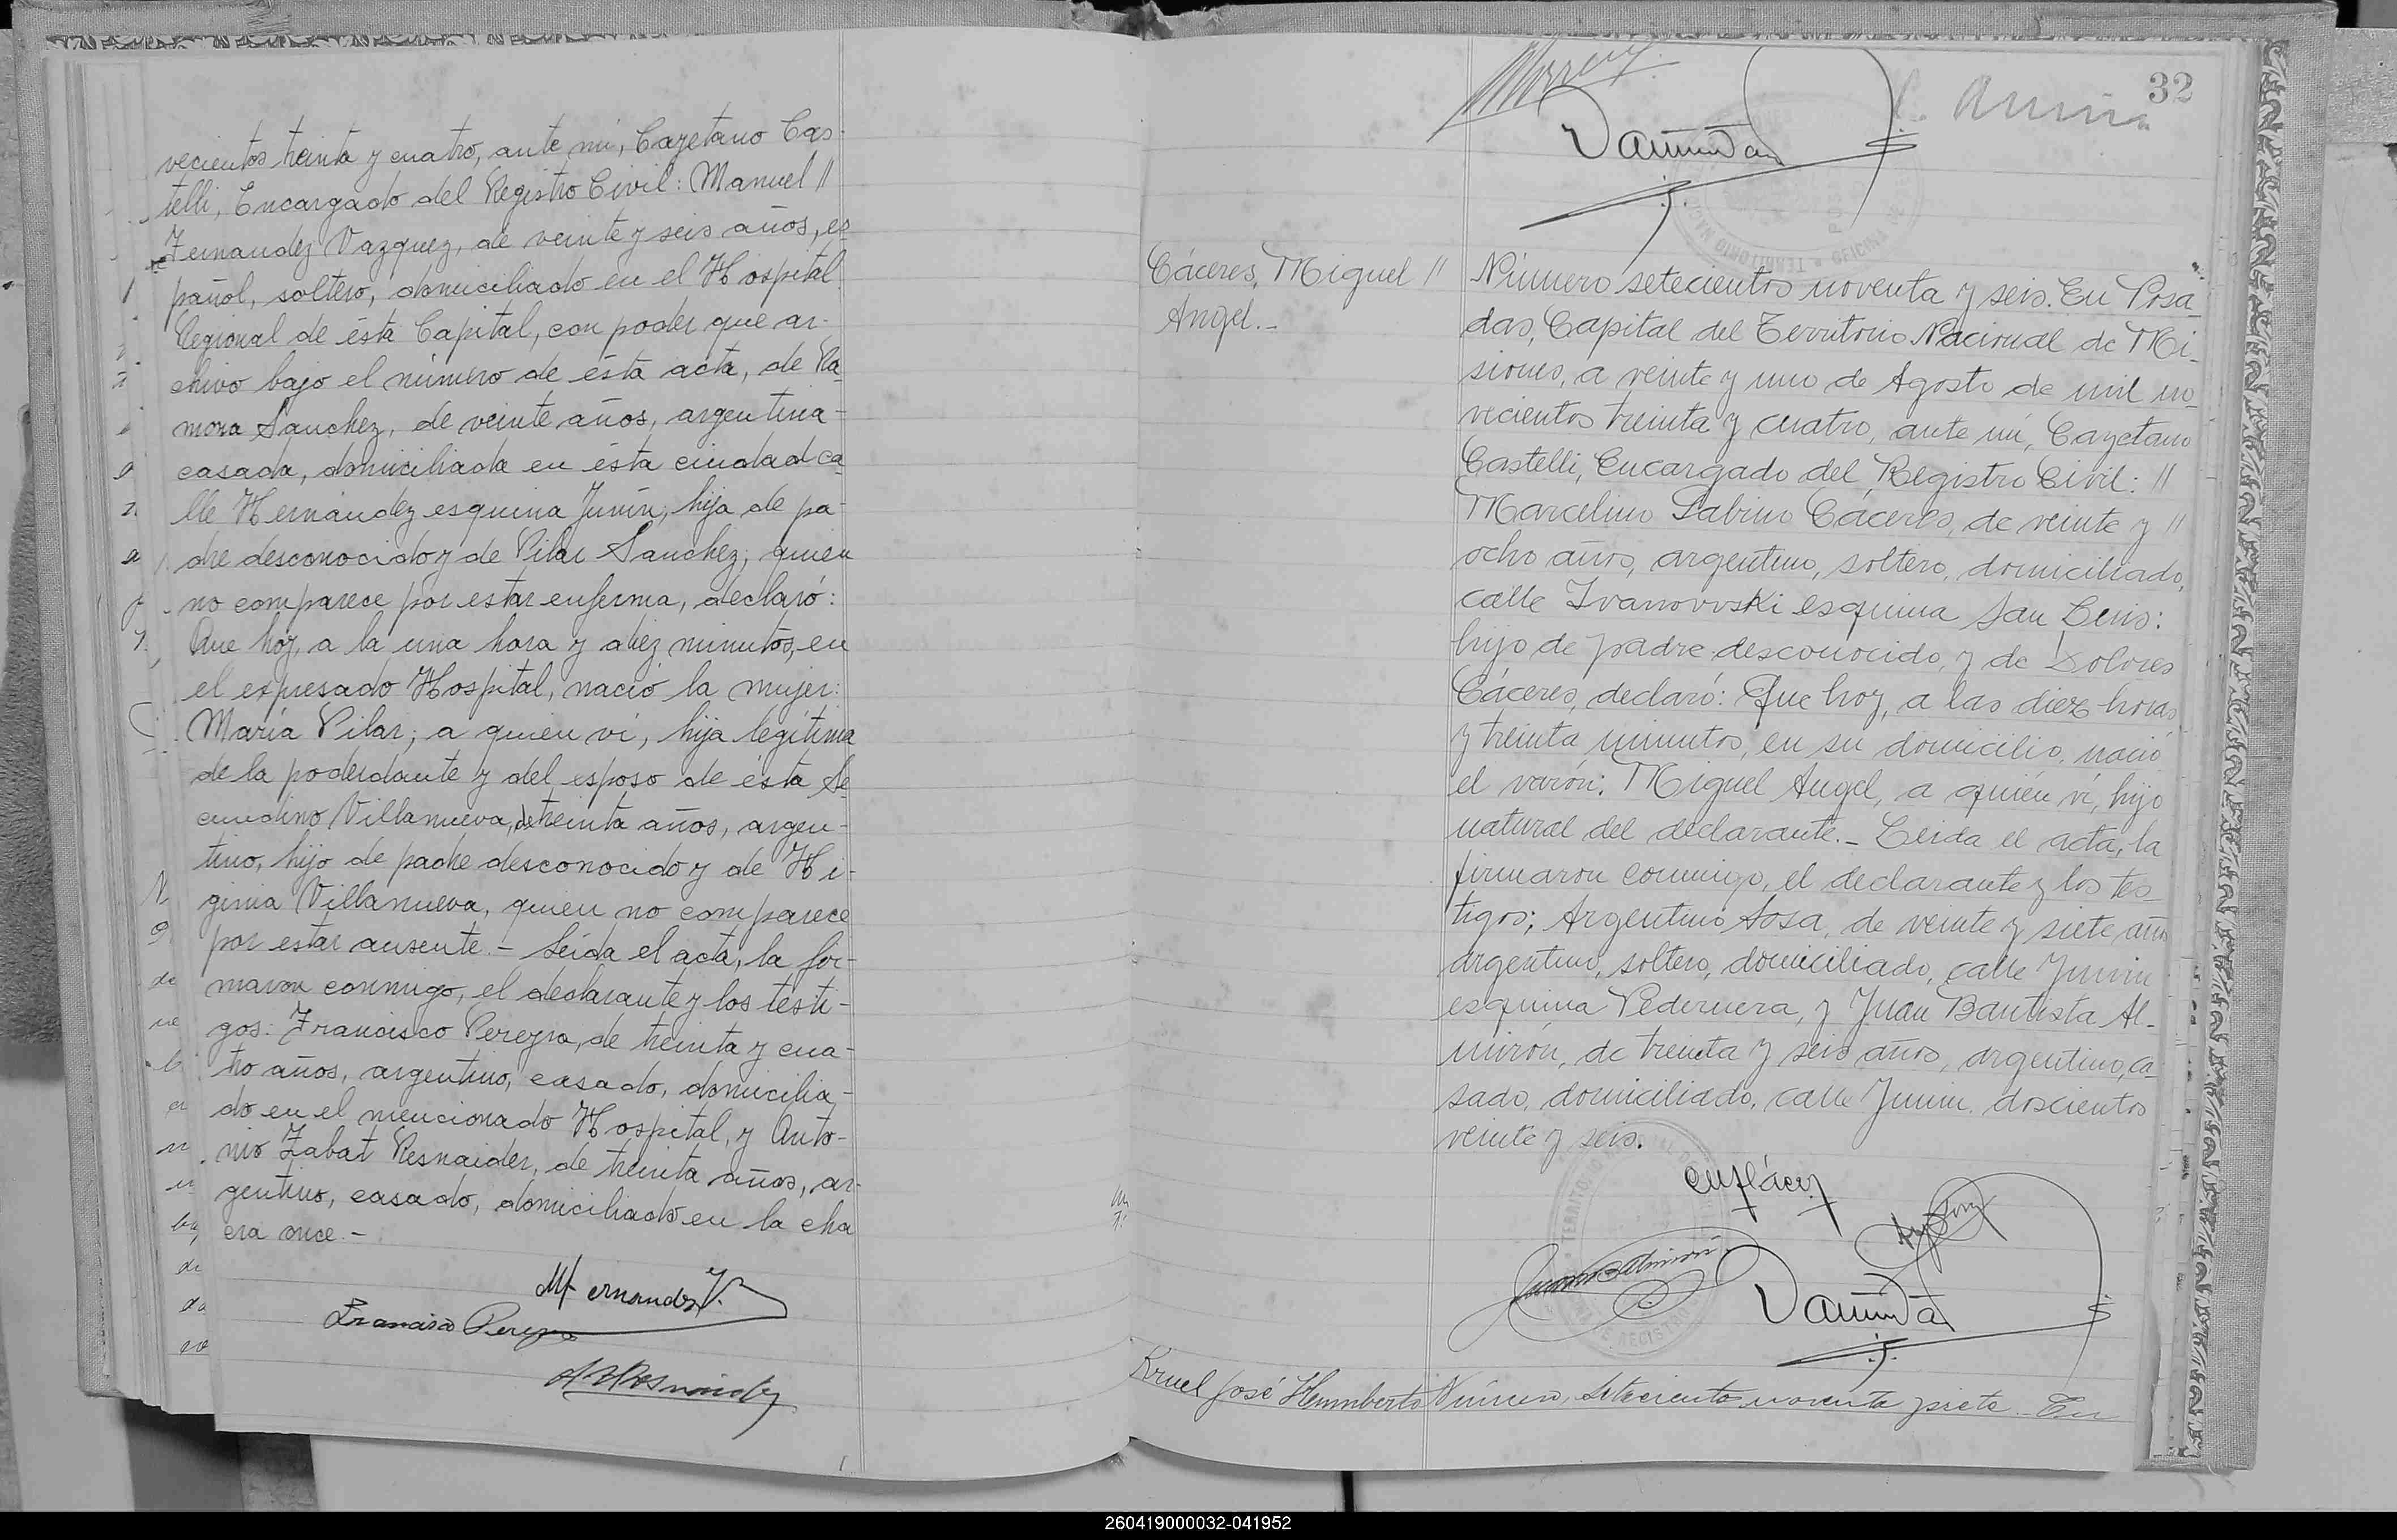 vecientos treinta y cuatro, ante mi, Cayetano Cas-
telli, Encargado del Registro Civil: Manuel //
Fernandez Vazquez, de veinte y seis años, es-
pañol, soltero, domiciliado en el Hospital
Regional de ésta Capital, con poder que ar-
chivo bajo el número de ésta acta, de Ra-
mona Sanchez, de veinte años, argentina-
casada, domiciliada en ésta ciudad ca-
lle Hernández esquina Junín, hija de pa-
dre desconocido y de Pilar Sanchez, quien
no comparece por estar enferma, declaró:
Que hoy, a la una hora y diez minutos, en
el expresado Hospital, nació la mujer:
María Pilar; a quien vi, hija legítima
de la poderdante y del esposo de ésta Se-
cundino Villanueva, de treinta años, argen-
tino, hijo de padre desconocido y de Hi-
ginia Villanueva, quien no comparece
por estar ausente.- Leída el acta, la fir-
maron conmigo, el declarante y los testi-
gos: Francisco Pereyra, de treinta y cua-
tro años, argentino, casado, domicilia-
do en el mencionado Hospital, y Anto-
nio Zabat Resnaider, de treinta años, ar-
gentino, casado, domiciliado en la cha
cra once.-
MFernandez V.
Francisco Pereyra
32
Cáceres, Miguel //
Angel.-
Número setecientos noventa y seis. En Posa-
das, Capital del Territorio Nacional de Mi-
siones, a veinte y uno de Agosto de mil no-
vecientos treinta y cuatro, ante mi, Cayetano
Castelli, Encargado del Registro Civil: //
Marcelino Sabino Cáceres, de veinte y //
ocho años, argentino, soltero, domiciliado,
calle Ivanovvski esquina San Luis:
hijo de padre desconocido, y de Dolores
Cáceres, declaró: Que hoy, a las diez horas
y treinta minutos, en su domicilio, nació
el varón: Miguel Angel, a quién vi, hijo
natural del declarante.- Leida el acta, la
firmaron conmigo, el declarante y los tes-
tigos; Argentino Sosa, de veinte y siete años
argentino, soltero, domiciliado, calle Junin
esquina Pedernera, y Juan Bautista Al-
mirón, de treinta y seis años, argentino, ca-
sado, domiciliado, calle Junin doscientos
veinte y seis.
Juan B Almirón
Kruel José Humberto
Número, Setecientos noventa y siete. En
260419000032-041952